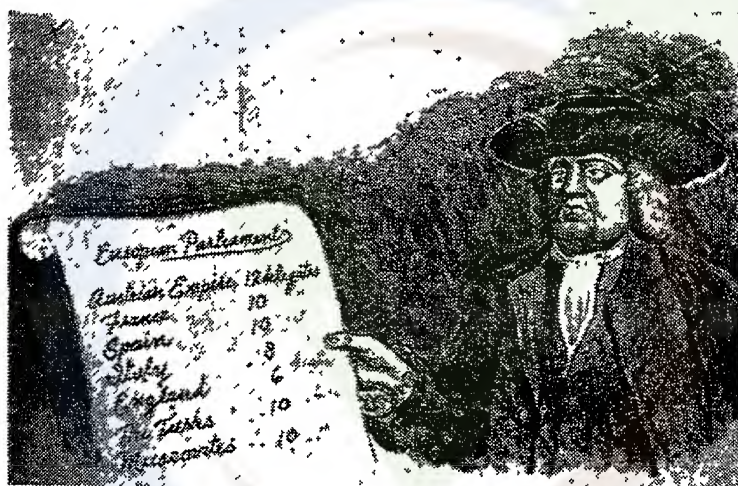 European Parliament
Empire 12 delegates
France 10
Spain 10
Italy 8
England 6
Turks 10
Muscovites 10